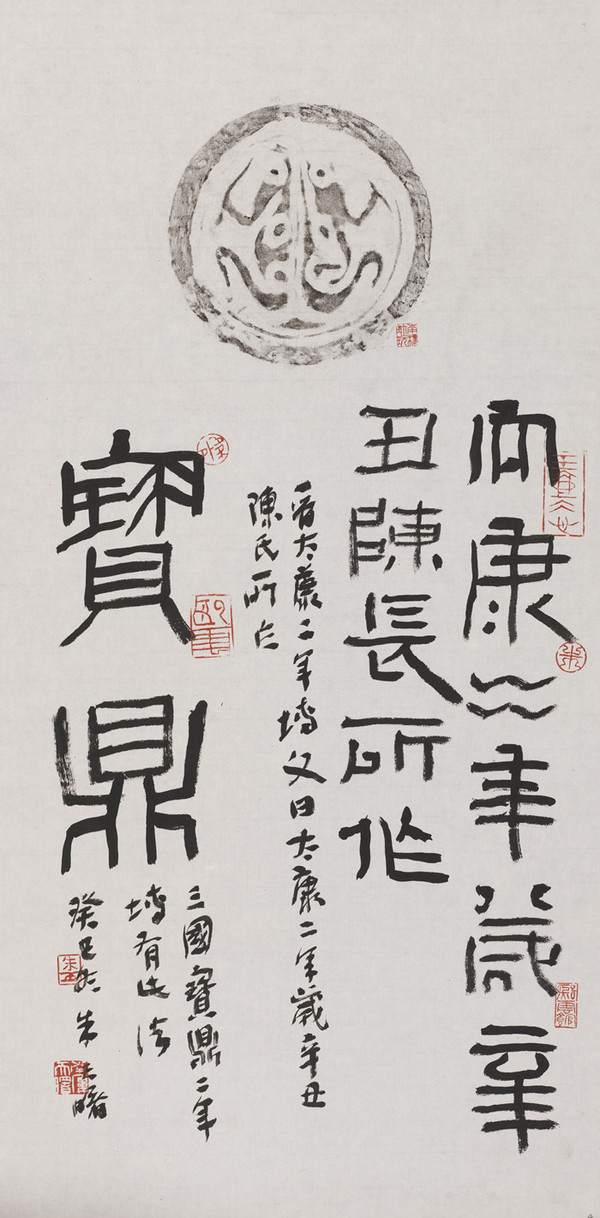 太康二年歲辛
丑陳長所作
晉太康二年塼文曰太康二年歲辛丑
陳氏所作
寶鼎
三國寶鼎二年
塼有此法
癸巳 朱天曙